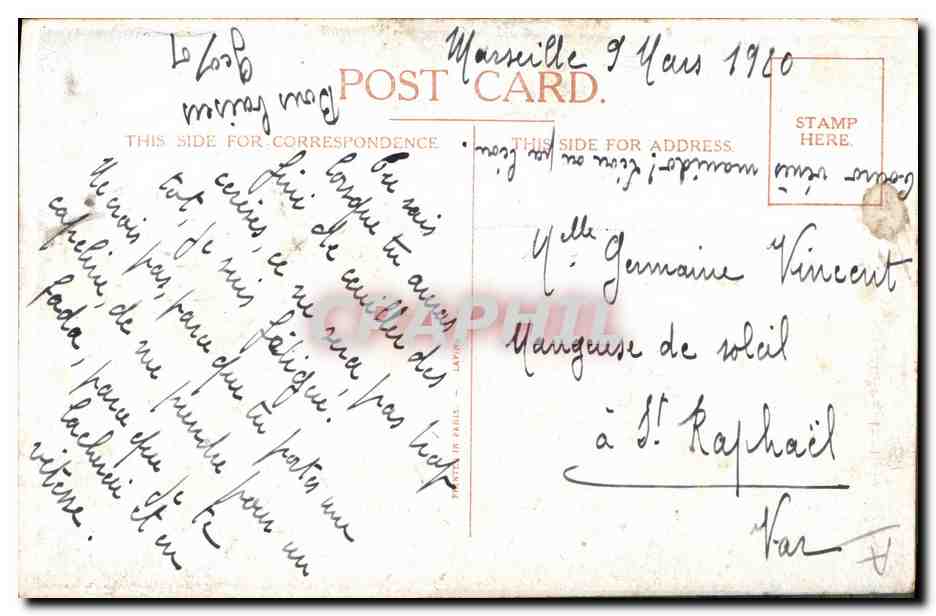 Marseille 9 Mars 1920
POST CARD.
THIS SIDE FOR CORRESPONDENCE
THIS SIDE FOR ADDRESS.
STAMP
HERE.
Bons baisers
Tu sais
lorsque tu auras
fini de cueillir des
cerises, ce ne sera pas trop
tot, je suis fatigué.
Ne crois pas, parce que tu portes une
capeline, de me prendre pour un
fada, parce que je te
lacherai et en
vitesse.
Mlle Germaine Vincent
Mangeuse de soleil
à St Raphaël
Var
PRINTED IN PARIS. - LAPINA
CPAPHIL